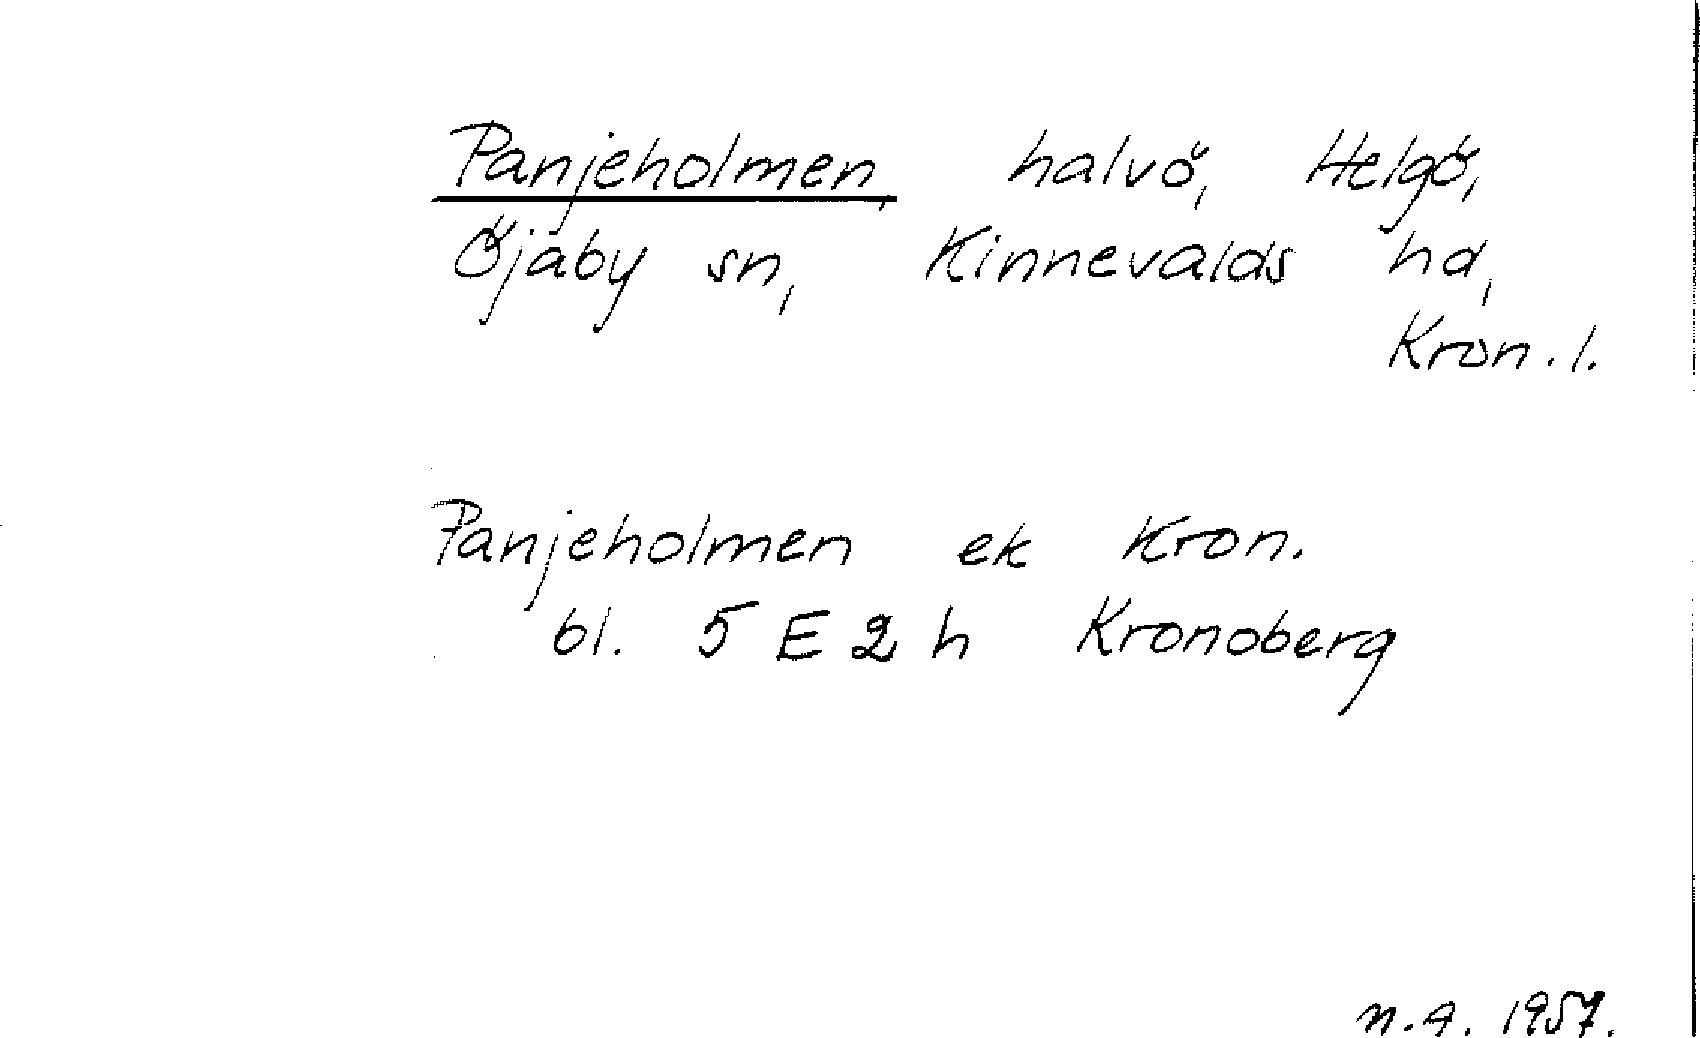 Panjeholmen, halvö, Helgö,
Öjaby sn, Kinnevalds hd,
Kron. l.
Panjeholmen ek Kron.
bl. 5 E 2 h Kronoberg
n.a. 1957.